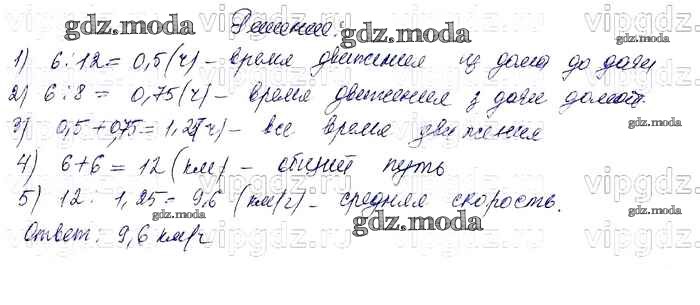 gdz.moda Решение: gdz.moda
1) 6:12=0,5(ч) – время движения из дома до дачи
2) 6:8= 0,75(ч) – время движения с дачи домой.
3) 0,5+0,75=1,25(ч) – все время движения
4) 6+6=12 (км) – общий путь
5) 12:1,25=9,6 (км/ч) – средняя скорость.
gdz.moda
Ответ: 9,6 км/ч